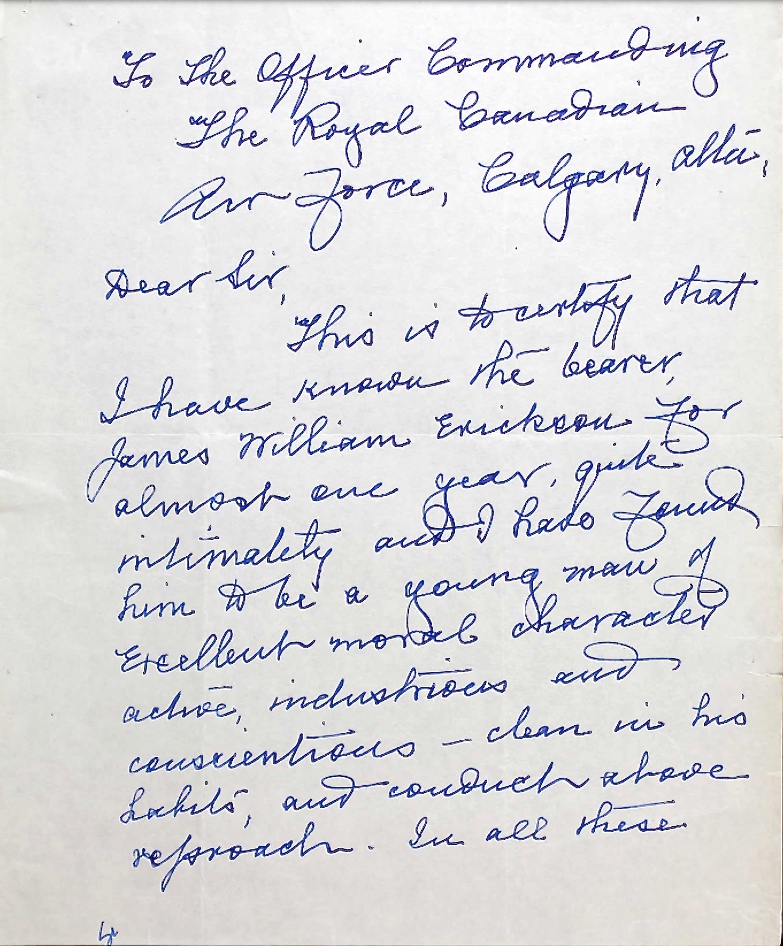 To The Officer Commanding
The Royal Canadian
Air Force, Calgary, Alta,
Dear Sir,
This is to certify that
I have known the bearer,
James William Erickson for
almost one year, quite
intimately and I have found
him to be a young man of
Excellent moral character
active, industrious and
conscientious — clean in his
habits, and conduct above
reproach. In all these